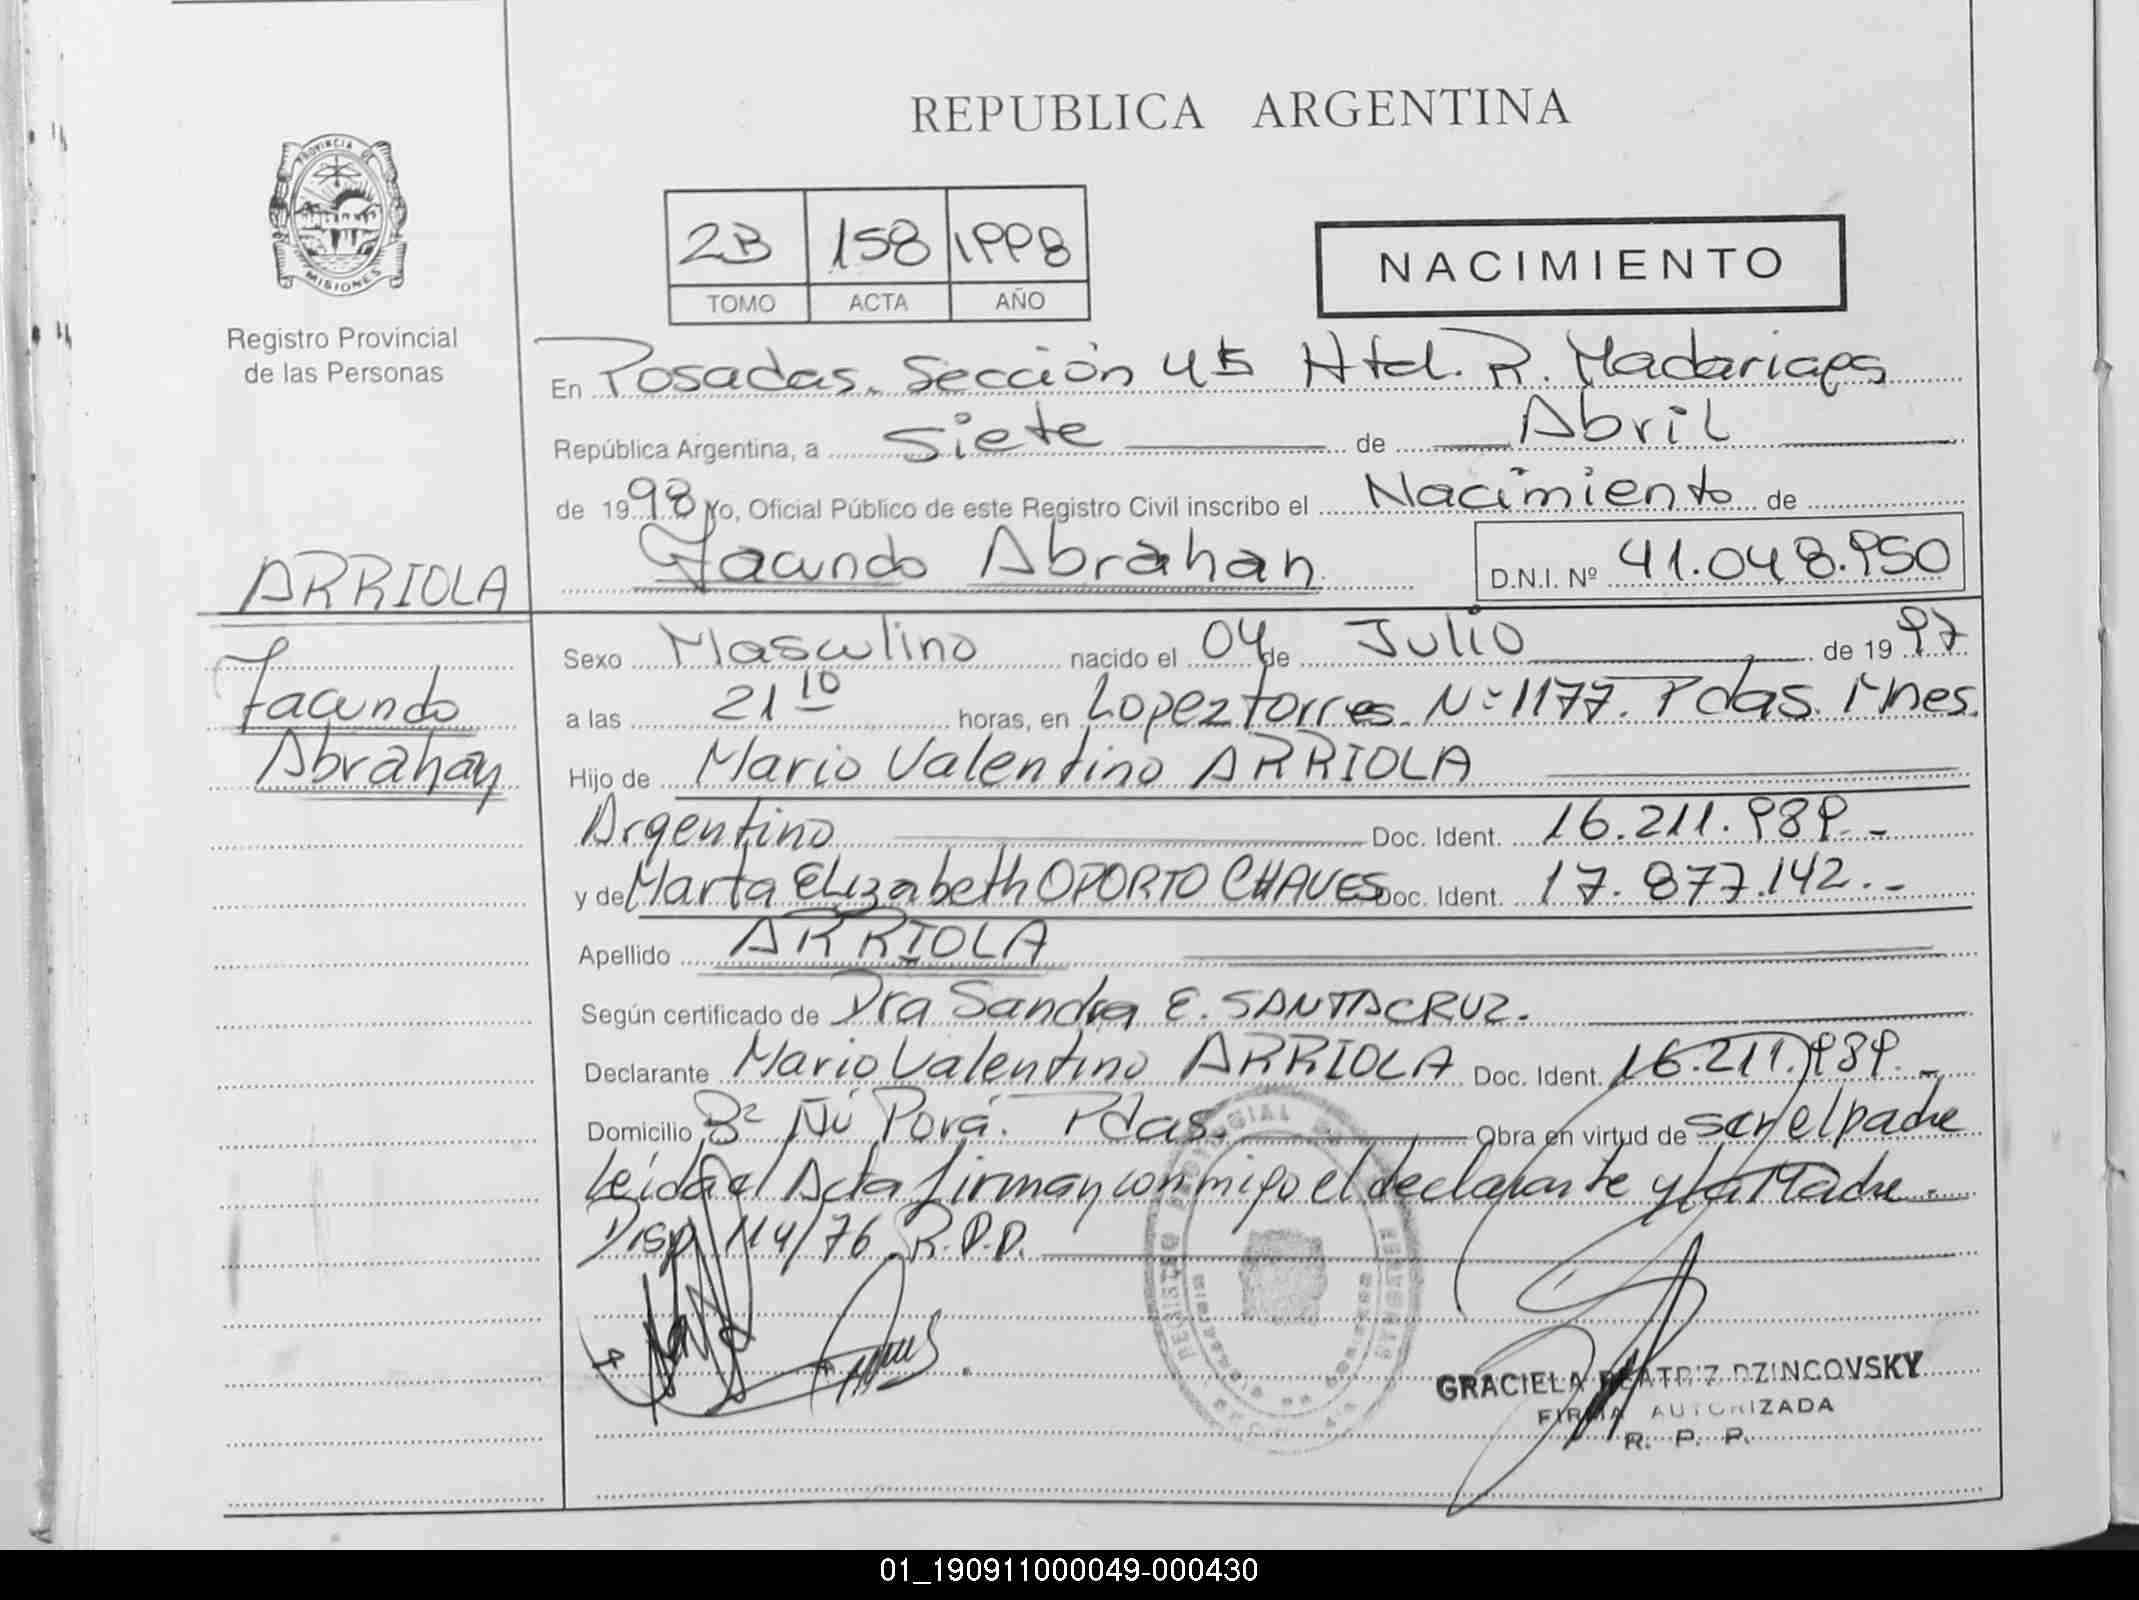 REPUBLICA ARGENTINA
PROVINCIA DE
MISIONES
Registro Provincial
de las Personas
2B 158 1998
TOMO ACTA AÑO
NACIMIENTO
En Posadas. Sección 4ta Htal. R. Madariaga
República Argentina, a siete de Abril
de 1998 Yo, Oficial Público de este Registro Civil inscribo el Nacimiento de
Facundo Abrahan D.N.I. Nº 41.048.950
ARRIOLA
Facundo
Abrahan
Sexo Masculino nacido el 04 de Julio de 1997
a las 21 10 horas, en Lopez torres Nº 1177. Pdas. Mnes.
Hijo de Mario Valentino ARRIOLA
Argentino Doc. Ident. 16.211.989.-
y de Marta Elizabeth OPORTO CHAVES Doc. Ident. 17.877.142.-
Apellido ARRIOLA
Según certificado de Dra Sandra E. SANTACRUZ.
Declarante Mario Valentino ARRIOLA Doc. Ident. 16.211.989.-
Domicilio Bº Ñú Porá. Pdas. Obra en virtud de ser el padre
Leida el Acta firman conmigo el declarante y la Madre.-
Disp. 114/76 R.P.P.
GRACIELA BEATRIZ DZINCOVSKY
FIRMA AUTORIZADA
R. P. P.
01_190911000049-000430